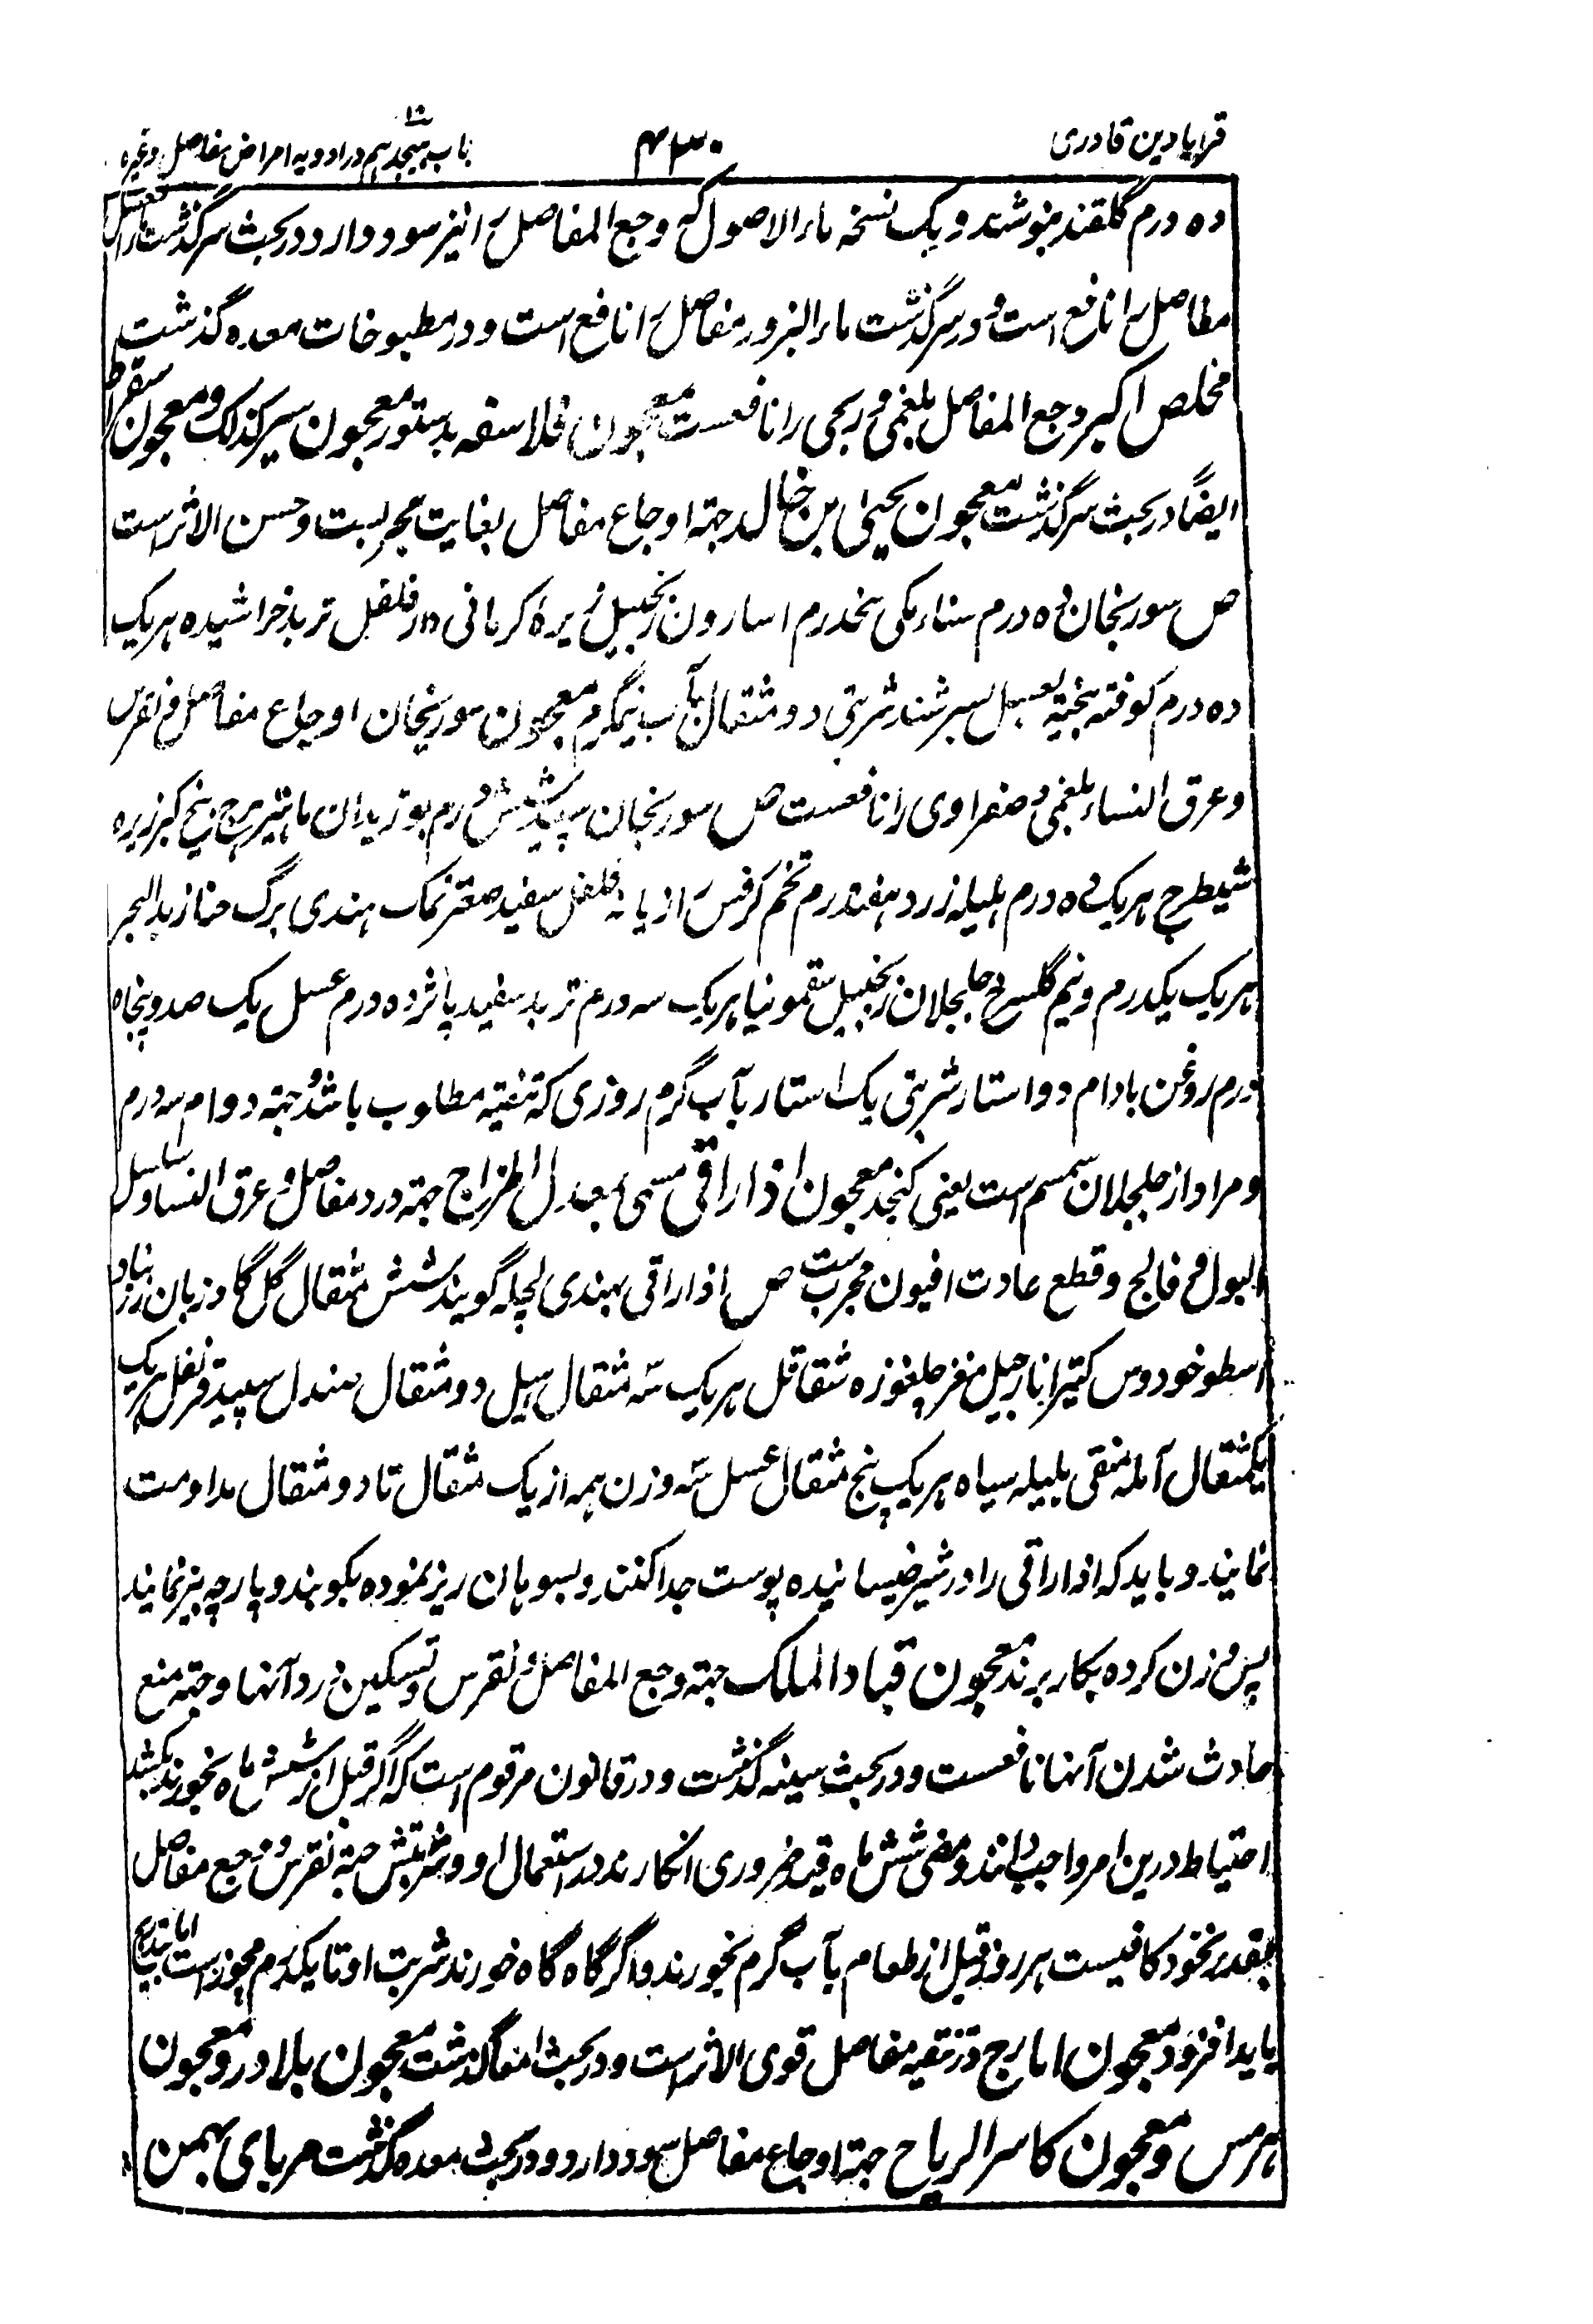 قرابادین قادری
۴۳۰
باب هیجدهم در ادویه امراض مفاصل وغیره
ده درم گلقند بنوشند و یک نسخه ماء الاصول که وجع المفاصل را نیز سود دارد در بحث سر گذشت
مفاصل را نافع است و در سر گذشت ماء البزور مفاصل را نافع است و در مطبوخات معده گذشت
مخلص اکبر وجع المفاصل بلغمی و ریحی را نافعست معجون فلاسفه بدستور معجون سیر کذلک و معجون سقراط
ایضاً در بحث سر گذشت معجون یحیی بن خال جهته اوجاع مفاصل بغایت مجربست و حسن الاثر است
ص سورنجان ده درم سناء مکی پنجدرم اسارون زنجبیل زیره کرمانی دارفلفل تربد خراشیده هر یک
ده درم کوفته بیخته بعسل بسرشند شربتی دو مثقال بآب نیمگرم معجون سورنجان اوجاع مفاصل و نقرس
و عرق النساء بلغمی و صفراوی را نافعست ص سورنجان سپید شش درم بوزیدان ماهیزهرج بیخ کبر زیره
شیطرج هر یک ده درم هلیله زرد هفتدرم تخم کرفس رازیانه فلفل سفید صعتر نمک هندی برگ حنا زبد البحر
هر یک یکدرم و نیم گلسرخ جلجلان زنجبیل سقمونیا هر یک سه درم تربد سفید پانزده درم عسل یک صد و پنجاه
درم روغن بادام دو استار شربتی یک استار بآب گرم روزی که تنقیه مطلوب باشد و جهته دوام سه درم
و مراد از جلجلان سمسم است یعنی کنجد معجون اذاراقی مسمی بمعدل المزاج جهته درد مفاصل و عرق النسا و سلسل
البول و فالج و قطع عادت افیون مجربست ص اذاراقی بهندی کچله گویند شش مثقال گل گاوزبان زرنباد
اسطوخودوس کتیرا نارجیل مغز چلغوزه شقاقل هر یک سه مثقال هیل دو مثقال صندل سپید قرنفل هر یک
یکمثقال آمله منقی هلیله سیاه هر یک پنج مثقال عسل سه وزن همه از یک مثقال تا دو مثقال مداومت
نمایند و باید که اذاراقی را در شیر خیسانیده پوست جدا کنند و بسوهان ریز نموده بکوبند و پارچه بیز نمایند
پس وزن کرده بکار برند معجون قباد الملک جهته وجع المفاصل و نقرس و تسکین درد آنها و جهته منع
حادث شدن آنها نافعست و در بحث سینه گذشت و در قانون مرقوم است که اگر قبل از شش ماه بخورند بکشد
احتیاط درین امر واجب دانند و مضی شش ماه قید ضروری انکارند در استعمال او و شربتش جهته نقرس و وجع مفاصل
بقدر نخود کافیست هر روز قبل از طعام بآب گرم بخورند و اگر گاه گاه خورند شربت او تا یکدرم مجوز است اما بتدریج
باید افزود معجون ایارج در تنقیه مفاصل قوی الاثر است و در بحث امعا گذشت معجون بلادر و معجون
هرمس و معجون کاسر الریاح جهته اوجاع مفاصل سود دارد و در بحث معده گذشت مربای بهمن